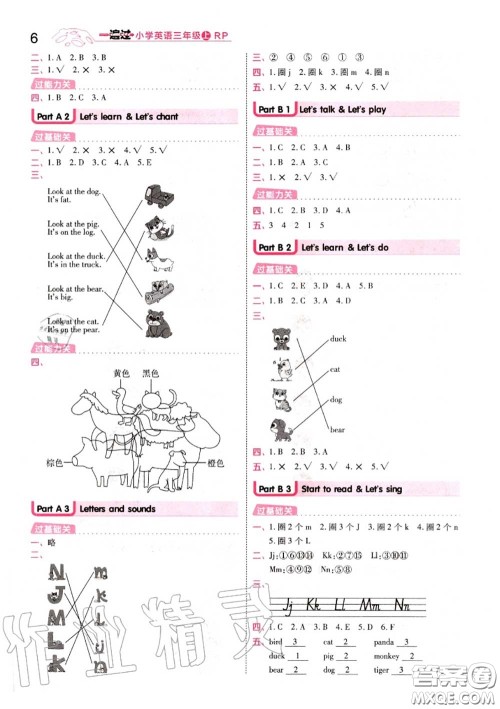 6
一遍过·小学英语三年级上RP
二、1. A 2. B 3. B
三、1. √ 2. × 3. ×
过能力关
四、1. B 2. C 3. A
Part A 2 Let's learn & Let's chant
过基础关
一、1. √ 2. × 3. × 4. √ 5. √
二、1. B 2. D 3. C 4. A 5. E
三、
Look at the dog.
It's fat.
Look at the pig.
It's on the log.
Look at the duck.
It's in the truck.
Look at the bear.
It's big.
Look at the cat.
It's on the pear.
过能力关
四、
黄色 黑色
棕色 橙色
Part A 3 Letters and sounds
过基础关
一、略
二、
N m
J n
M k
L j
K l
三、② ④ ⑤ ① ⑥ ③
四、1. 圈 j 2. 圈 k 3. 圈 m 4. 圈 n
五、1. √ 2. × 3. √ 4. √
Part B 1 Let's talk & Let's play
过基础关
一、1. C 2. D 3. A 4. B
二、1. B 2. A 3. C
三、1. × 2. √ 3. √
过能力关
四、1. C 2. B 3. D 4. A
五、3 4 2 1 5
Part B 2 Let's learn & Let's do
过基础关
一、1. C 2. D 3. A 4. A 5. B
二、1. B 2. C 3. A 4. D
三、
duck
cat
dog
bear
过能力关
四、1. B 2. A
五、1. × 2. √ 3. × 4. × 5. √
Part B 3 Start to read & Let's sing
过基础关
一、1. 圈 2 个 m 2. 圈 3 个 J 3. 圈 2 个 k 4. 圈 2 个 n
5. 圈 3 个 L
二、Jj:①⑥⑬⑭ Kk:②⑦⑮ Ll:③⑩⑪
Mm:④⑨⑫ Nn:⑤⑧
过能力关
三、
Jj Kk Ll Mm Nn
四、1. C 2. A 3. B 4. E 5. D 6. F
五、bird 3 cat 2 panda 3
duck 1 pig 2 monkey 2
bear 2 dog 2 tiger 1
作业精灵
答案圈
MXQE.COM